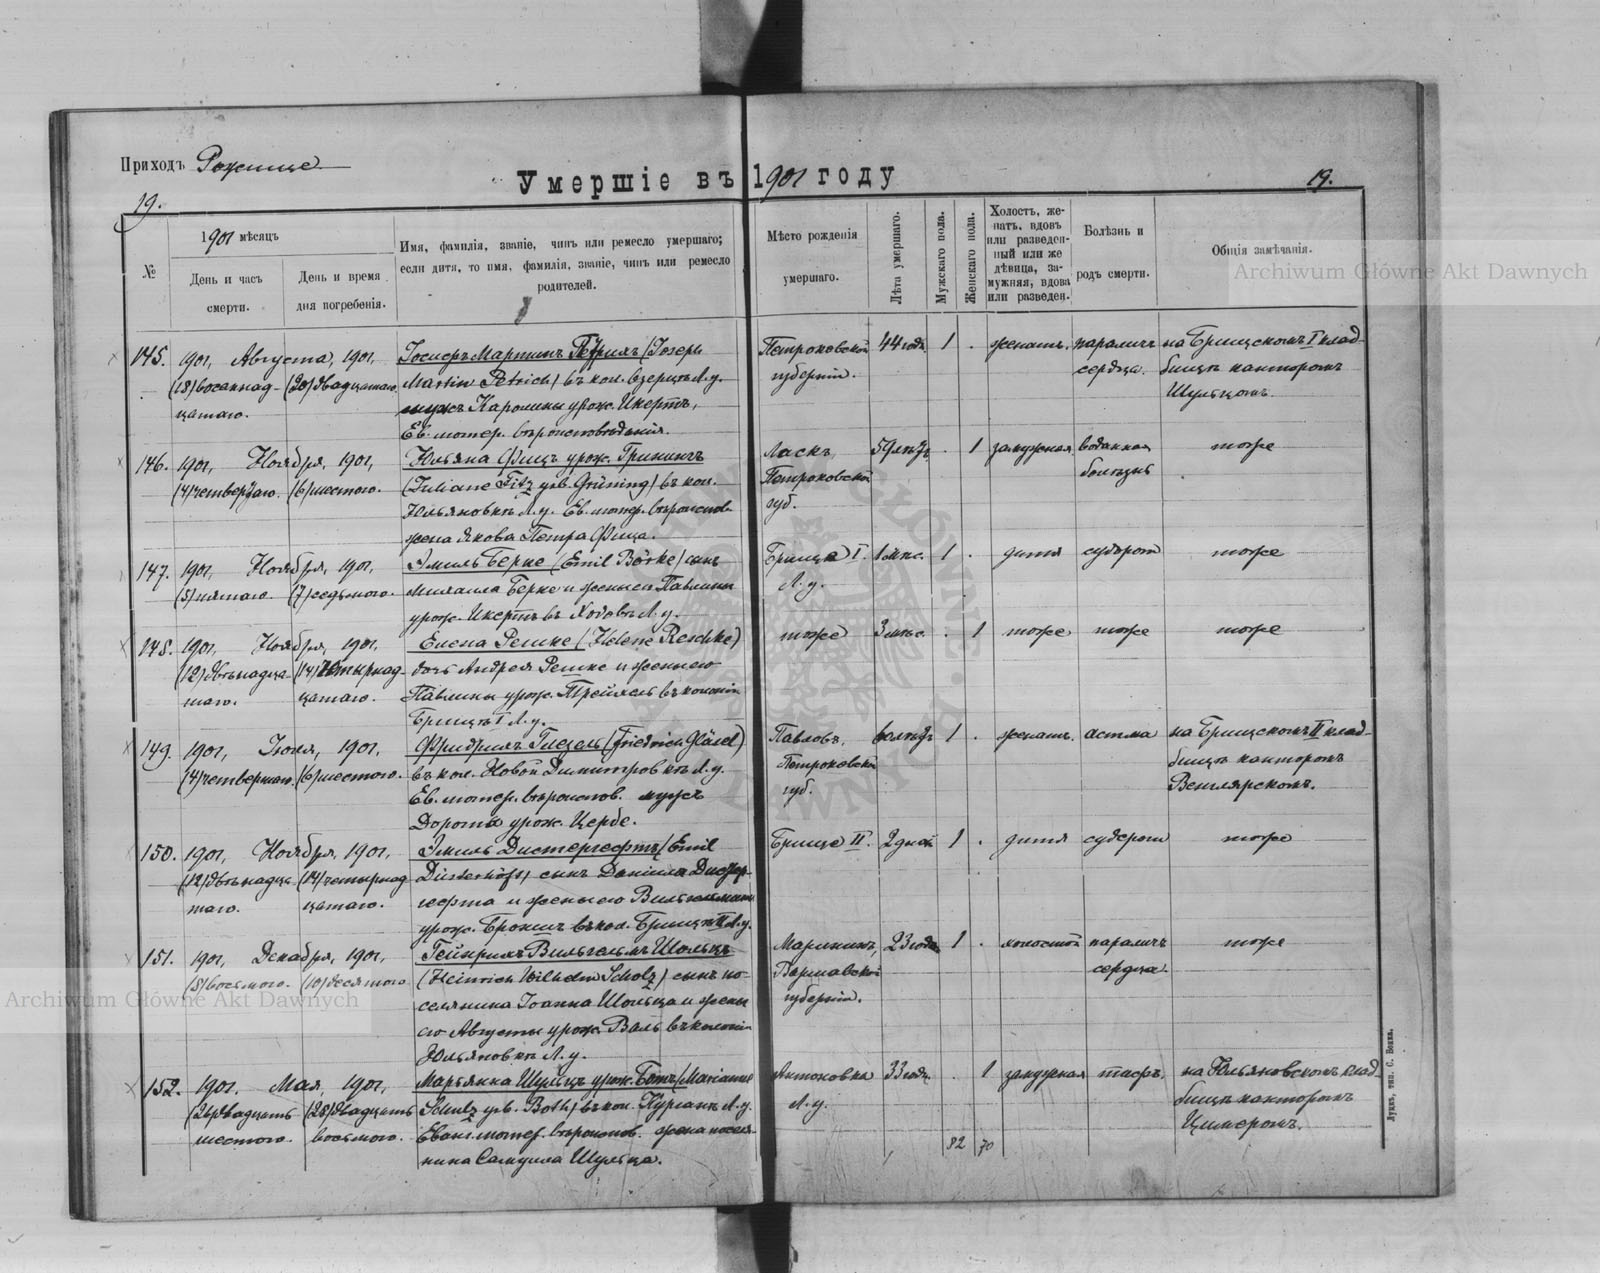 Приходъ Рожище
Умершіе въ 1901 году
19.
19.
№
1901 мѣсяцъ
День и часъ смерти.
День и время дня погребенія.
Имя, фамилія, званіе, чинъ или ремесло умершаго;
если дитя, то имя, фамилія, званіе, чинъ или ремесло
родителей.
Мѣсто рожденія
умершаго.
Лѣта умершаго.
Мужскаго пола.
Женскаго пола.
Холостъ, же-
натъ, вдовъ
или разведен-
ный или же
дѣвица, за-
мужняя, вдова
или разведен.
Болѣзнь и
родъ смерти.
Общія замѣчанія.
Archiwum Główne Akt Dawnych
145. 1901, Августа, 1901, Іосифъ Мартинъ Петрихъ (Joseph Петроковской 44 года 1 . женатъ. параличъ на Брищскомъ I клад-
(18) восемнад- (20) двадцатаго. Martin Petrich) въ кол. Озерцѣ Л. у. губерніи. сердца. бищѣ канторомъ
цатаго. мужъ Каролины урож. Икертъ, Шульцомъ.
Ев. лютер. вѣроисповѣданія.
146. 1901, Ноября, 1901, Юльяна Фицъ урож. Грининг Ласкъ, 59 лѣтъ . 1 замужная водянная тоже
(4) четвертаго. (6) шестого. (Juliane Fitz geb. Grüning) въ кол. Петроковской болѣзнь
Юльяновкѣ Л. у. Ев. лютер. вѣроиспов. губ.
жена Якова Петра Фица.
147. 1901, Ноября, 1901, Эмиль Берке (Emil Börke) сынъ Брище I. 1 мѣс. 1 . дитя судорог тоже
(5) пятаго. (7) седьмого. Михаила Берке и жены его Павлины Л. у.
урож. Икертъ въ Л. у.
148. 1901, Ноября, 1901, Елена Решке (Helene Reschke) тоже 3 мѣс. . 1 тоже тоже тоже
(12) двѣнадца- (14) четырнад- дочь Андрея Решке и жены его
таго. цатаго. Павлины урож. Трейхель въ колоніи
Брищѣ I Л. у.
149. 1901, Іюля, 1901, Фридрихъ Глезель (Friedrich Gläsel) Павловъ, лѣтъ 1 . женатъ. астма на Брищскомъ II клад-
(4) четвертаго. (6) шестого. въ кол. Новой Димитровкѣ Л. у. Петроковской бищѣ канторомъ
Ев. лютер. вѣроиспов. мужъ губ. Венглярскомъ.
Доротѣ урож. Цербе.
150. 1901, Ноября, 1901, Эмиль Дистергефтъ (Emil Брище II. 2 дней 1 . дитя судороги тоже
(12) двѣнадца- (14) четырнад- Düsterhöft) сынъ Даніила Дистер-
таго. цатаго. гефта и жены его Вильгельмины
урож. Брокшъ въ кол. Брищѣ II Л. у.
151. 1901, Декабря, 1901, Гейнрихъ Вильгельмъ Шольцъ 23 года 1 . холостой параличъ тоже
(8) восьмого. (10) десятого. (Heinrich Wilhelm Scholz) сынъ по- Варшавской сердца.
селянина Іоанна Шольца и жены губерніи.
его Августы урож. Валь въ колоніи
Юльяновкѣ Л. у.
152. 1901. Мая, 1901, Марьянна Шульцъ урож. Ботъ (Marianne Антоновка 33 года . 1 замужная тифъ. на Юльяновскомъ клад-
(26) двадцать (28) двадцать Schulz geb. Both) въ кол. Курганѣ Л. у. Л. у. бищѣ канторомъ
шестого. восьмого. Еванг. лютер. вѣроиспов. жена посея- Цимеромъ.
нина Самуила Шульца.
82 70
Archiwum Główne Akt Dawnych
Луцкъ, тип. С. Бонка.